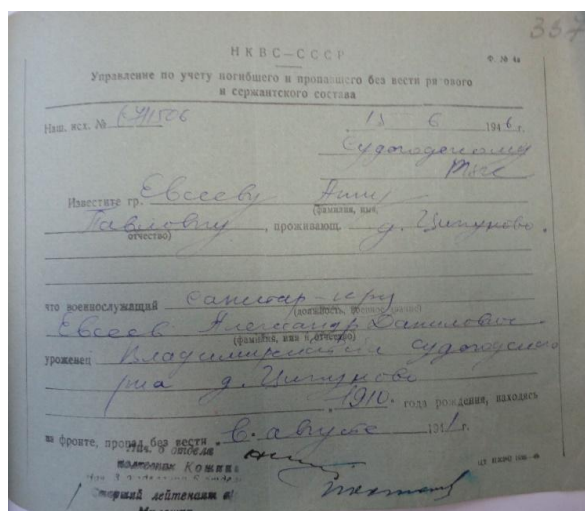 337
НКВС—СССР
Ф. № 4а
Управление по учету погибшего и пропавшего без вести ря ового
и сержантского состава
Наш. исх. №
15 6 1946 г.
Судогодскому
РВК
Известите гр. Евсееву Анну
(фамилия, имя,
Павловну, проживающ. д. Ципуново.
отчество)
что военнослужащий санитар-кр-ц
(должность, военное звание)
Евсеев Александр Данилович
(фамилия, имя и отчество)
уроженец Владимирской Судогодского
р-на д. Ципуново
1910. года рождения, находясь
на фронте, пропал без вести в августе 1941 г.
Нач. 6 отдела
полковник Кожин
Старший лейтенант а/